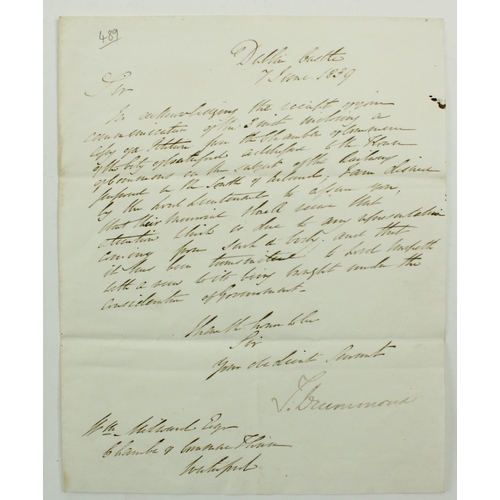 489
Dublin Castle
7 June 1839
Sir
In acknowledging the receipt of your
communication of the 5 inst. inclosing a
Copy of a Petition from the Chamber of Commerce
of the City of Waterford addressed to the House
of Commons on the subject of the Railway
proposed in the South of Ireland; I am desired
by the Lord Lieutenant to assure you,
that their Memorial shall receive that
attention which is due to any representation
coming from such a body, and that
it has been transmitted to Lord Morpeth
with a view to its being brought under the
consideration of Government.
I have the honor to be
Sir
Your obedient Servant
T. Drummond
Wm Milward Esqr
Chamber of Commerce
Waterford